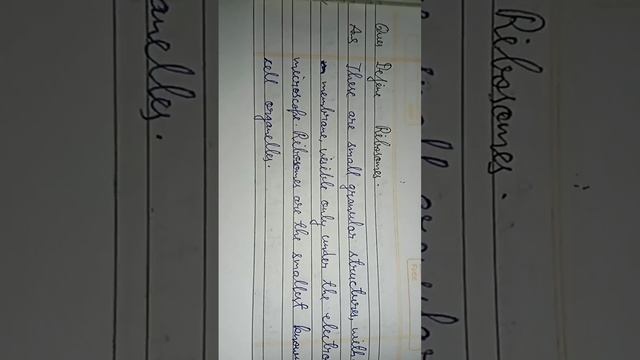 Ques Define Ribosomes.
Ans These are small granular structures, with
membrane, visible only under the electro
microscope. Ribosomes are the smallest know
cell organelles.
Ribosomes.
anelles.